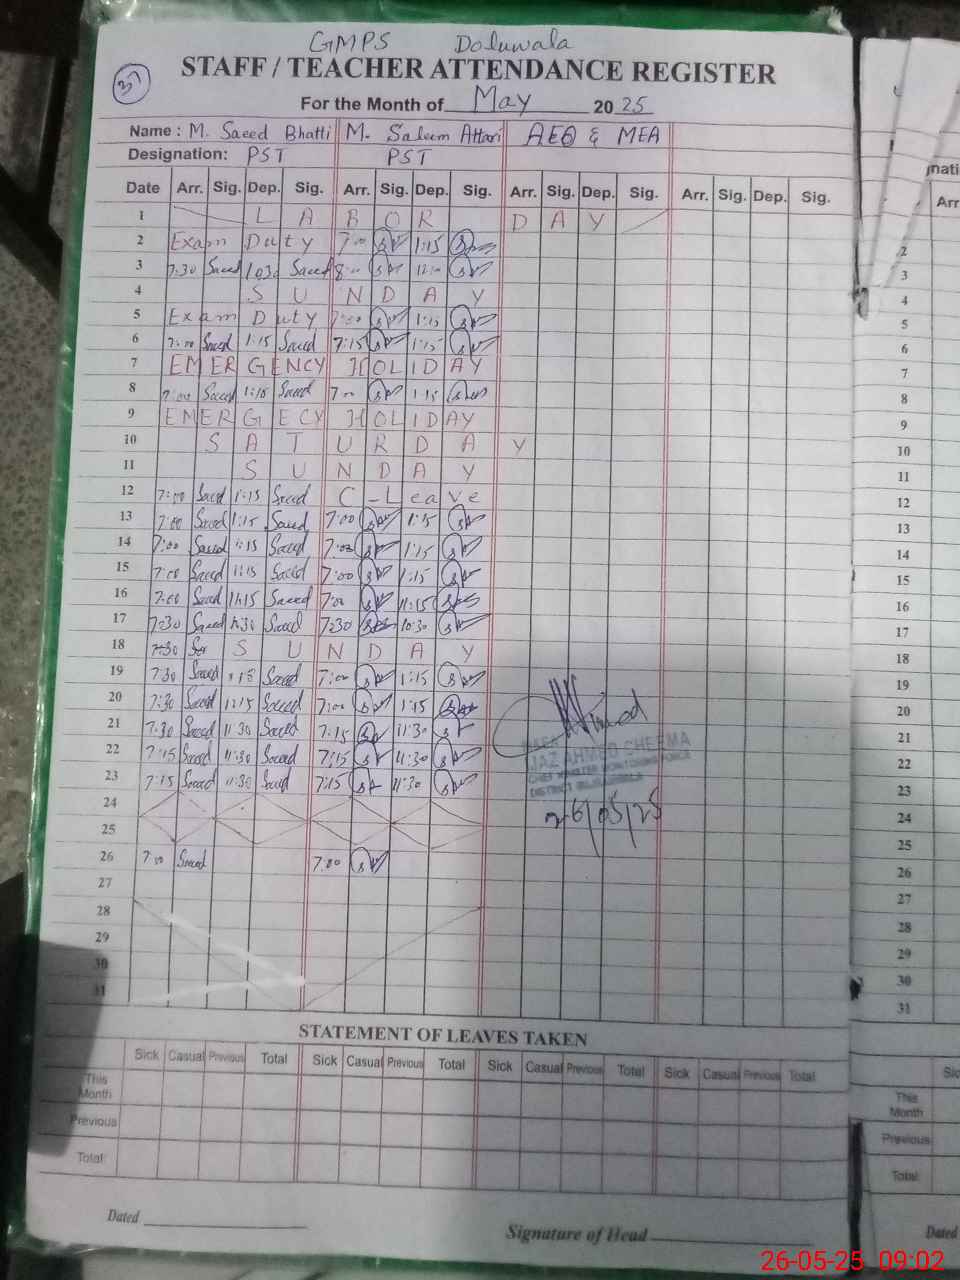 GMPS Doluwala
STAFF / TEACHER ATTENDANCE REGISTER
37
For the Month of May 2025
Name : M. Saeed Bhatti M. Saleem Attari AEO & MEA
Designation: PST PST
Date Arr. Sig. Dep. Sig. Arr. Sig. Dep. Sig. Arr. Sig. Dep. Sig. Arr. Sig. Dep. Sig.
1 L A B O R D A Y
2 Exam Duty 7:00 1:15
3 7:30 Saeed Saeed 8:00
4 S U N D A Y
5 Exam Duty 7:00 1:15
6 7:00 Saeed 1:15 Saeed 7:15 1:15
7 EMERGENCY HOLIDAY
8 7:00 Saeed 1:15 Saeed 7:00 1:15
9 EMERGECY HOLIDAY
10 S A T U R D A Y
11 S U N D A Y
12 7:00 Saeed 1:15 Saeed C-Leave
13 7:00 Saeed 1:15 Saeed 7:00 1:15
14 7:00 Saeed 1:15 Saeed 7:00 1:15
15 7:00 Saeed 1:15 Saeed 7:00 1:15
16 7:00 Saeed Saeed 7:00
17 7:30 Saeed Saeed 7:30 10:30
18 7:30 S U N D A Y
19 7:30 Saeed Saeed 7:00 1:15
20 7:30 Saeed Saeed 7:00 1:15
21 7:30 Saeed 11:30 Saeed 7:15 11:30
22 7:15 Saeed 11:30 Saeed 7:15 11:30
23 7:15 Saeed 11:30 Saeed 7:15 11:30
24
25
26 7:00 Saeed 7:00
27
28
29
30
31
IJAZ AHMED CHEEMA
CHIEF MINISTER MONITORING FORCE
26/05/25
STATEMENT OF LEAVES TAKEN
Sick Casual Previous Total Sick Casual Previous Total Sick Casual Previous Total Sick Casual Previous Total
This Month
Previous
Total
Dated
Signature of Head
Arr
2
3
4
5
6
7
8
9
10
11
12
13
14
15
16
17
18
19
20
21
22
23
24
25
26
27
28
29
30
31
This Month
Previous
Total
Dated
26-05-25 09:02